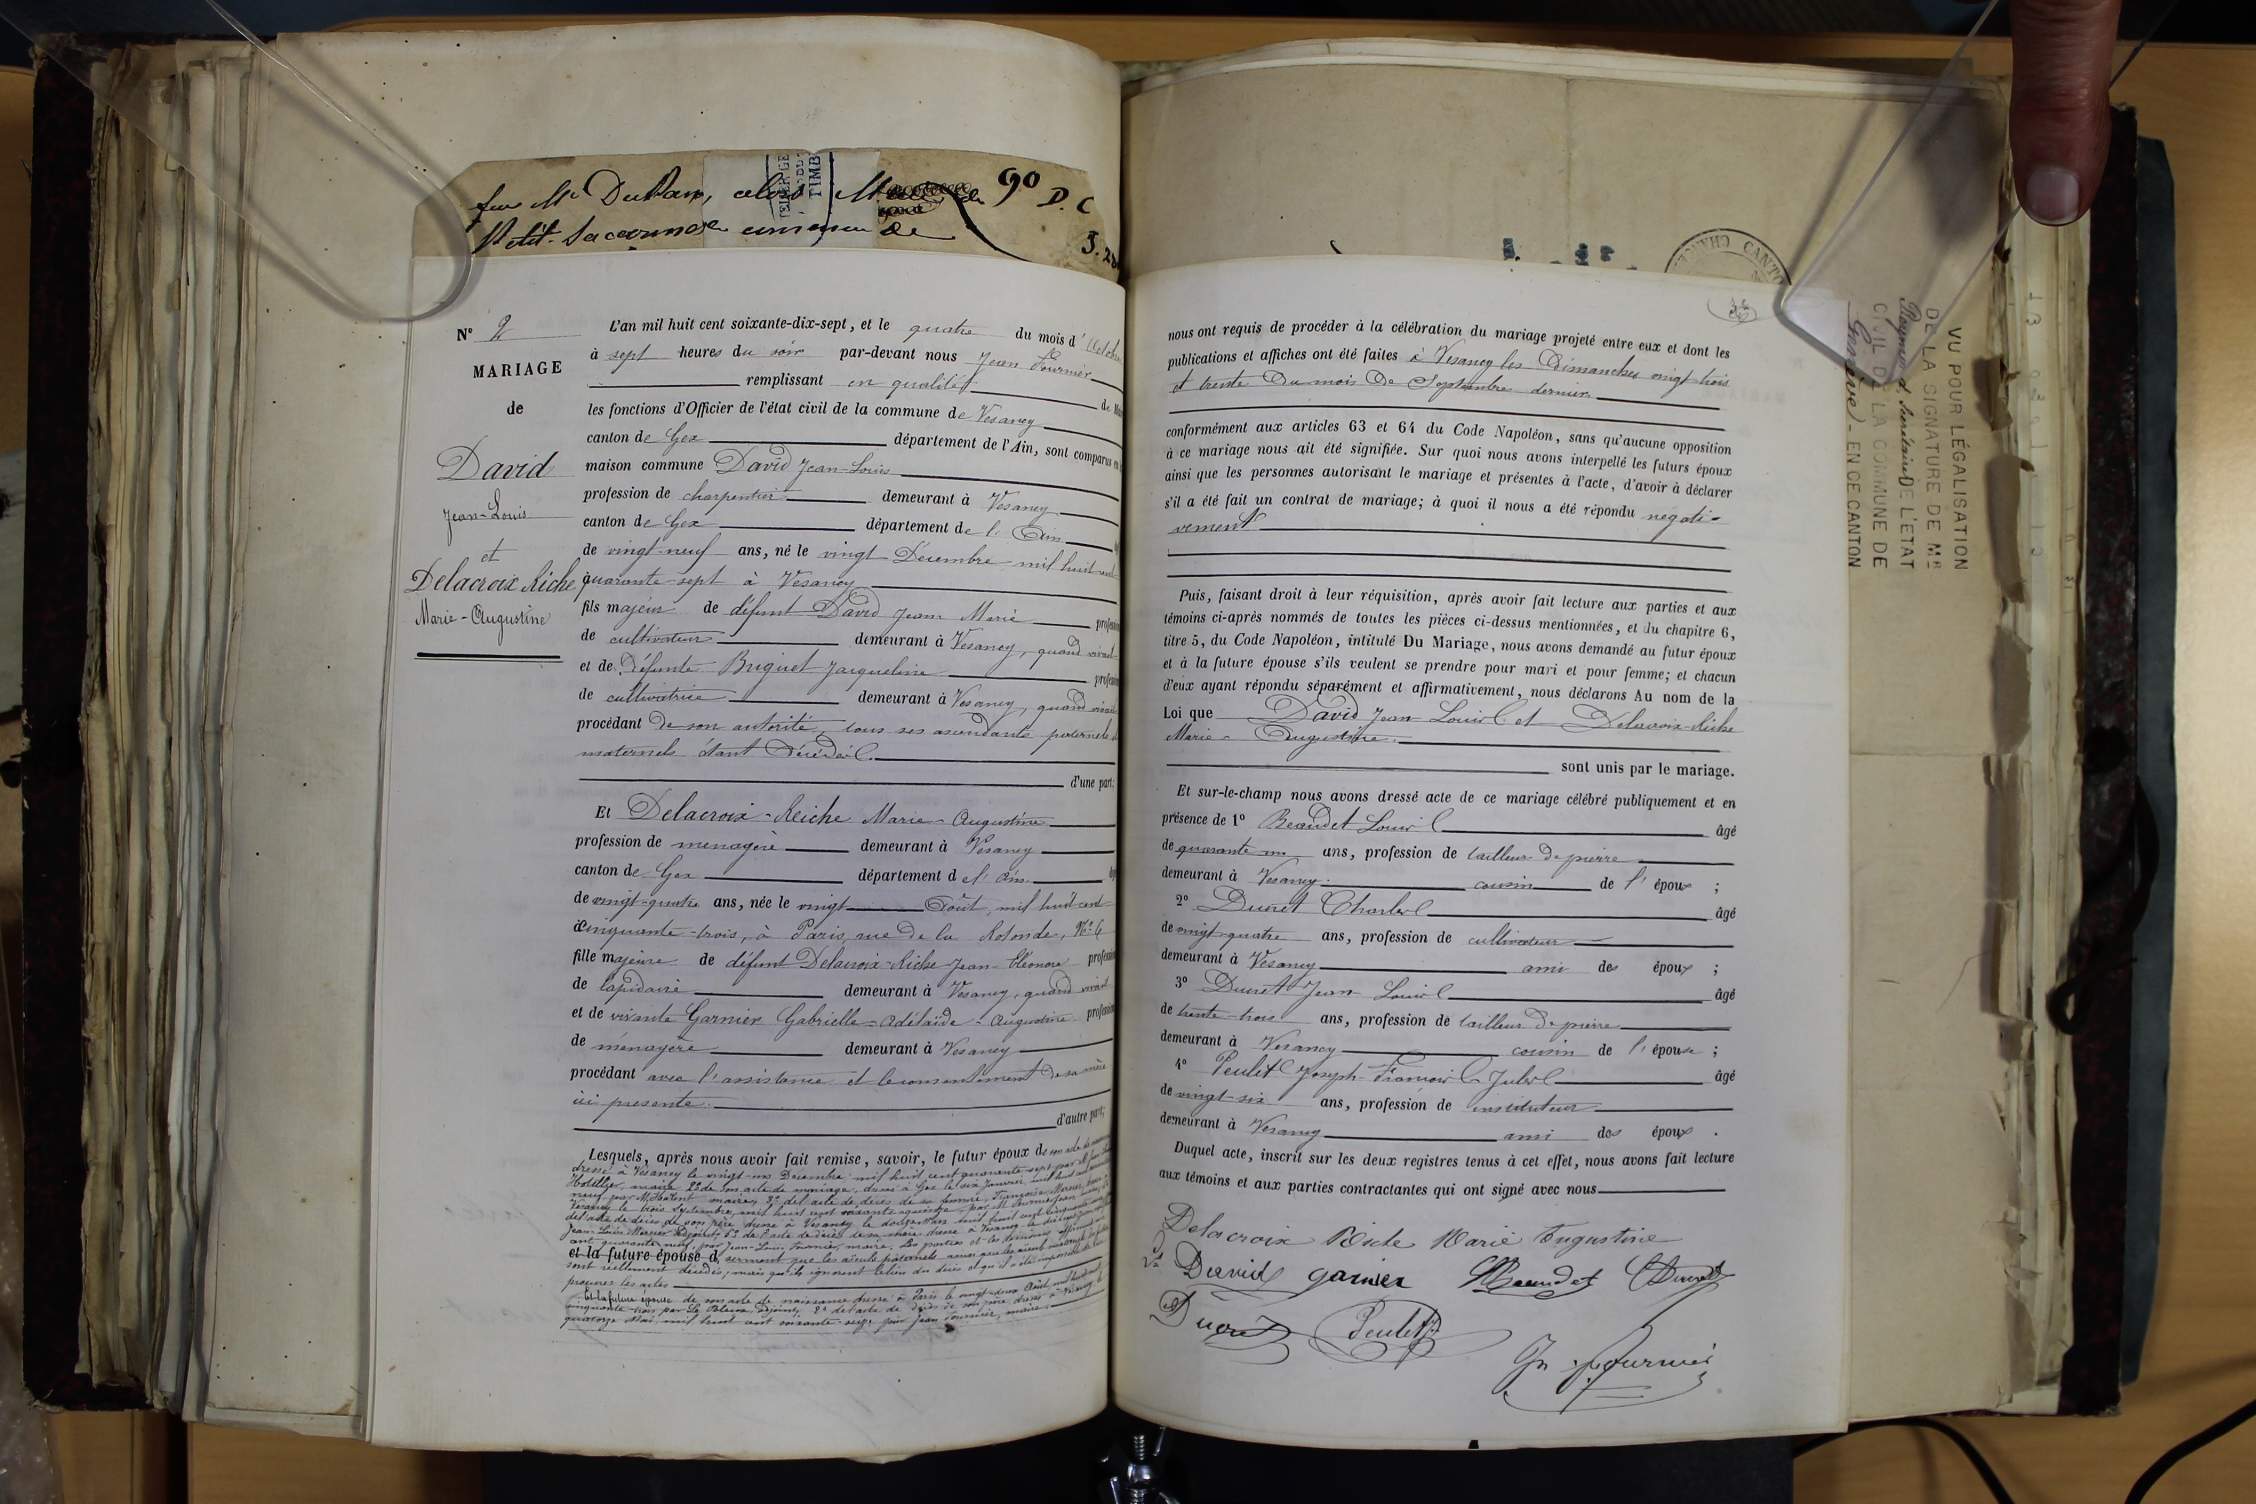 90 D. C
N° 2
MARIAGE
de
David
Jean-Louis
et
Delacroix Riche
Marie-Augustine
L'an mil huit cent soixante-dix-sept, et le quatre du mois d'
à sept heures du soir par-devant nous Jean Fournier
remplissant en qualité de
les fonctions d'Officier de l'état civil de la commune de Vesancy
canton de Gex département de l'Ain, sont comparus en
maison commune David Jean-Louis
profession de charpentier demeurant à Vesancy
canton de Gex département de l'Ain
de vingt-neuf ans, né le vingt Décembre mil huit cent
quarante-sept à Vesancy
fils majeur de défunt David Jean Marie
de cultivateur demeurant à Vesancy, quand vivait
et de défunte Briguet Jacqueline
de cultivatrice demeurant à Vesancy, quand vivait
procédant de son autorité, tous ses ascendants paternels
maternels étant décédés.
d'une part;
Et Delacroix-Reiche Marie-Augustine
profession de ménagère demeurant à Vesancy
canton de Gex département de l'Ain
de vingt-quatre ans, née le vingt Août, mil huit cent
cinquante-trois, à Paris, rue de la Rotonde, N° 6
fille majeure de défunt Delacroix-Riche Jean-Eléonore
de lapidaire demeurant à Vesancy, quand vivait
et de vivante Garnier Gabrielle-Adélaïde-Augustine
de ménagère demeurant à Vesancy
procédant avec l'assistance et le consentement de sa mère
ici présente.
d'autre part;
Lesquels, après nous avoir fait remise, savoir, le futur époux de son acte de
dressé à Vesancy le vingt-un Décembre mil huit cent quarante-sept par
maire 2° de son acte de mariage, dressé à Gex le six Janvier
maire 3° de l'acte de décès de sa femme, Françoise Mercier
Vesancy le trois Septembre, mil huit cent soixante-quinze
de l'acte de décès de son père dressé à Vesancy le douze Mars mil huit cent cinquante
Jean-Louis Mercier adjoint, 5° de l'acte de décès de sa mère dressé à Vesancy le
quarante-neuf, par Jean-Louis Fournier, maire. Les parties et les témoins affirment
et la future épouse d serment que les aïeuls paternels
sont réellement décédés, mais qu'ils ignorent le lieu du décès et qu'il a été impossible de
procurer les actes
Et la future épouse de son acte de naissance dressé à Paris le vingt-deux Août mil huit cent
cinquante-trois par adjoint, 2° de l'acte de décès de son père, dressé à Vesancy le
quatorze Mai mil huit cent soixante-sept par Jean Fournier, maire.
nous ont requis de procéder à la célébration du mariage projeté entre eux et dont les
publications et affiches ont été faites à Vesancy les Dimanches vingt-trois
et trente du mois de Septembre dernier.
conformément aux articles 63 et 64 du Code Napoléon, sans qu'aucune opposition
à ce mariage nous ait été signifiée. Sur quoi nous avons interpellé les futurs époux
ainsi que les personnes autorisant le mariage et présentes à l'acte, d'avoir à déclarer
s'il a été fait un contrat de mariage; à quoi il nous a été répondu négati-
vement
Puis, faisant droit à leur réquisition, après avoir fait lecture aux parties et aux
témoins ci-après nommés de toutes les pièces ci-dessus mentionnées, et du chapitre 6,
titre 5, du Code Napoléon, intitulé Du Mariage, nous avons demandé au futur époux
et à la future épouse s'ils veulent se prendre pour mari et pour femme; et chacun
d'eux ayant répondu séparément et affirmativement, nous déclarons Au nom de la
Loi que David Jean Louis et Delacroix-Riche
Marie-Augustine.
sont unis par le mariage.
Et sur-le-champ nous avons dressé acte de ce mariage célébré publiquement et en
présence de 1° Beaudet Louis âgé
de quarante un ans, profession de tailleur de pierre
demeurant à Vesancy. cousin de l'époux ;
2° Ducret Charles âgé
de vingt-quatre ans, profession de cultivateur
demeurant à Vesancy ami des époux ;
3° Ducret Jean Louis âgé
de trente-trois ans, profession de tailleur de pierre
demeurant à Vesancy cousin de l'épouse ;
4° Peulet Joseph-François Jules âgé
de vingt-six ans, profession de instituteur
demeurant à Vesancy ami des époux .
Duquel acte, inscrit sur les deux registres tenus à cet effet, nous avons fait lecture
aux témoins et aux parties contractantes qui ont signé avec nous
Delacroix Riche Marie Augustine
David garnier Beaudet Ducret
Ducret Peulet
Jn Fournier
VU POUR LÉGALISATION
DE LA SIGNATURE DE Mr
DE L'ÉTAT
CIVIL DE LA COMMUNE DE
Genève - EN CE CANTON